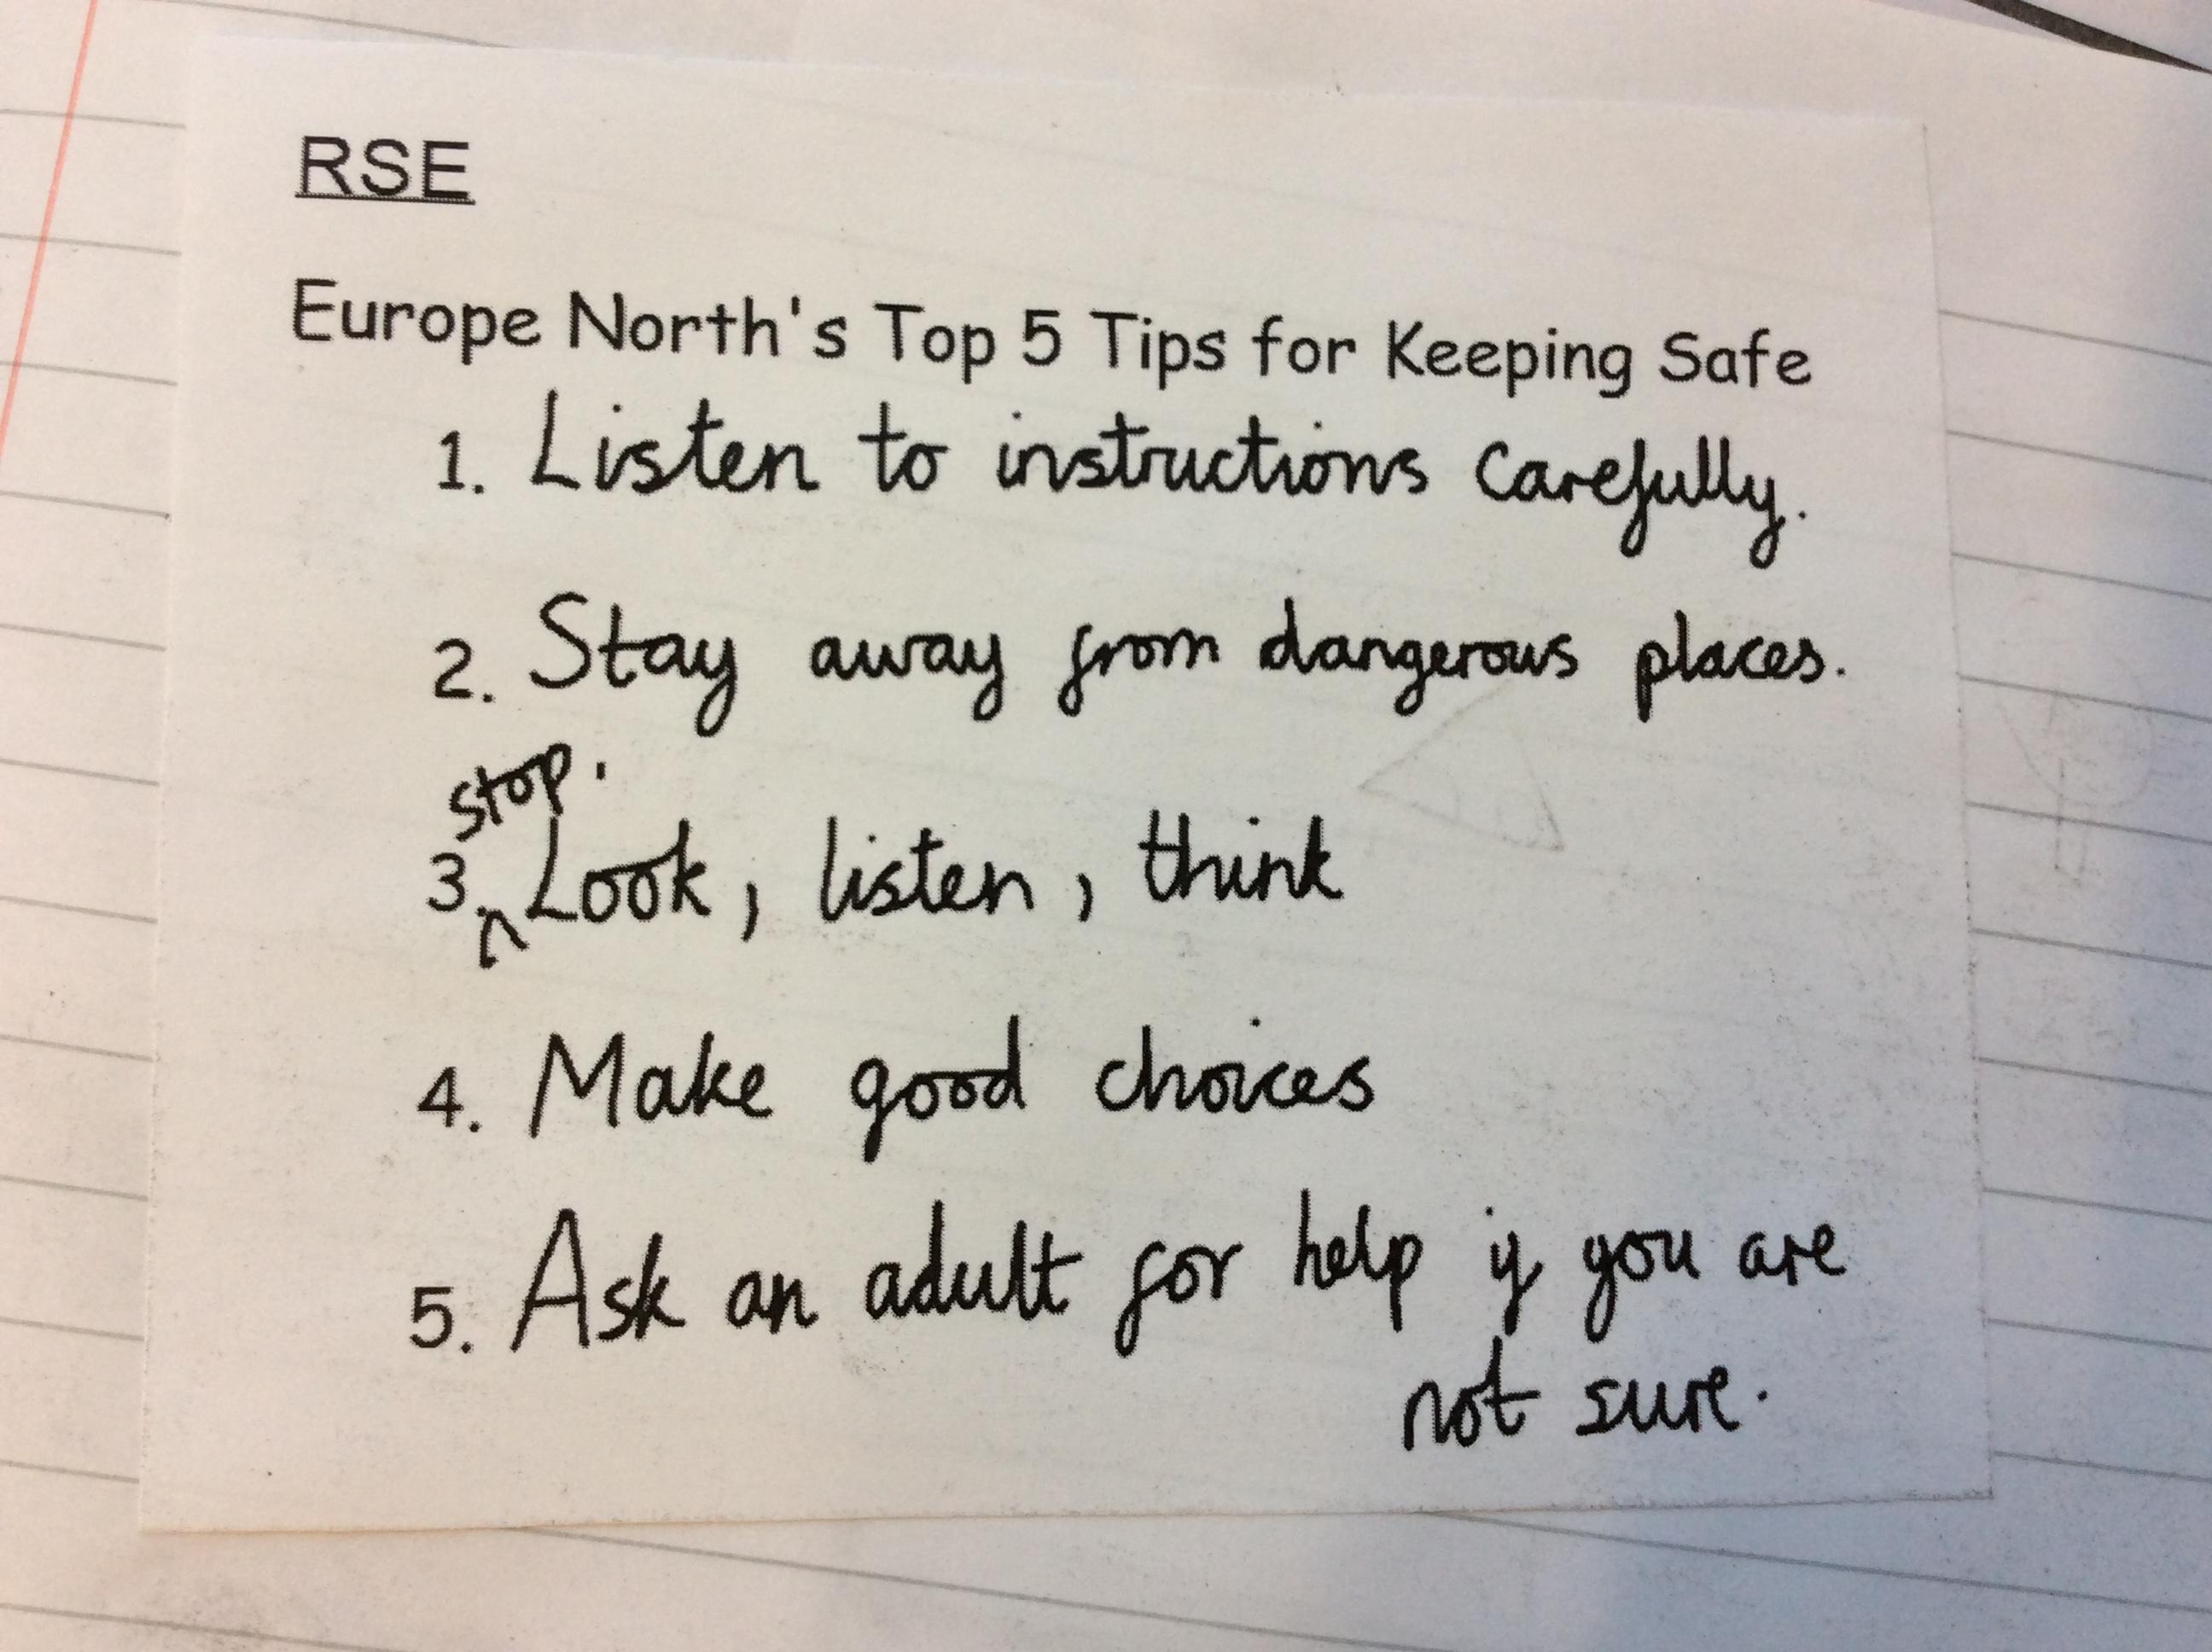 RSE
Europe North's Top 5 Tips for Keeping Safe
1. Listen to instructions carefully.
2. Stay away from dangerous places.
stop.
3. Look, listen, think
4. Make good choices
5. Ask an adult for help if you are
not sure.